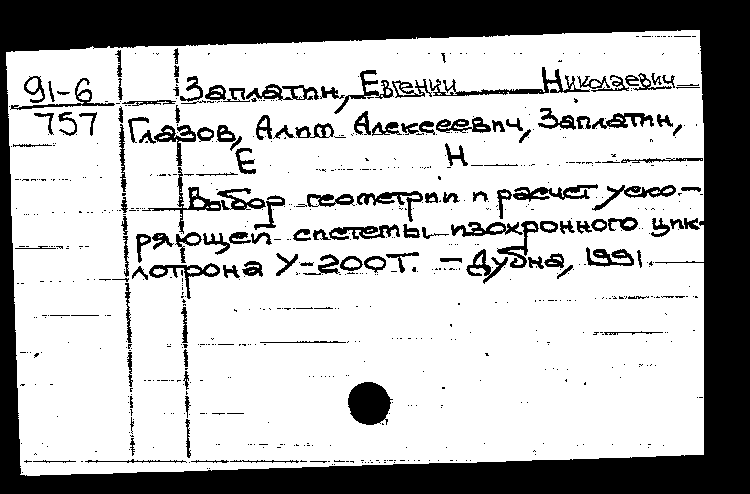 91-6 Заплатин, Евгении Николаевич
757 Глазов, Алим Алексеевич, Заплатин,
Е Н
Выбор геометрии и расчет уско-
ряющей системы изохронного цик-
лотрона У-200Т. - Дубна, 1991.